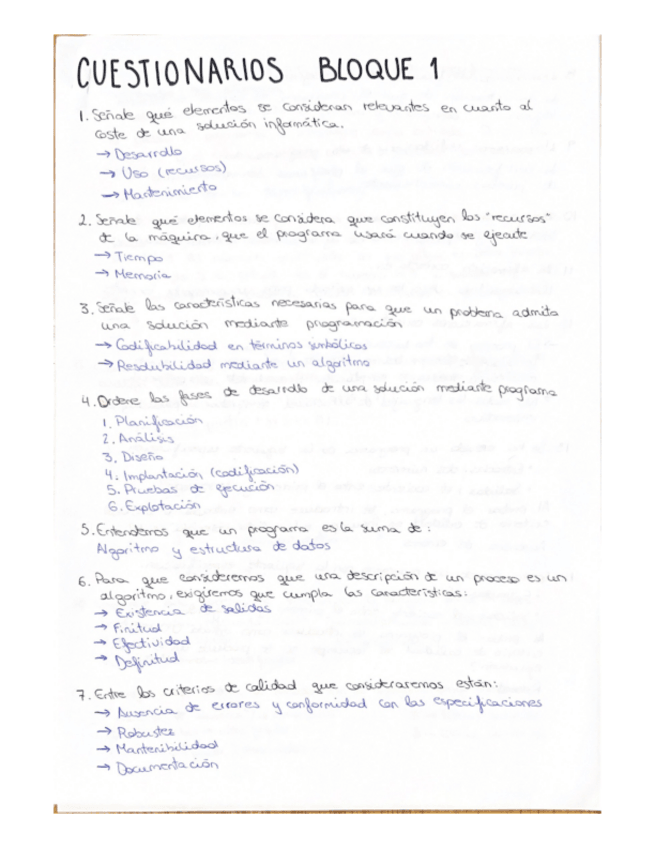 CUESTIONARIOS BLOQUE 1
1. Señale qué elementos se consideran relevantes en cuanto al
coste de una solución informática.
→ Desarrollo
→ Uso (recursos)
→ Mantenimiento
2. Señale qué elementos se considera que constituyen los "recursos"
de la máquina, que el programa usará cuando se ejecute
→ Tiempo
→ Memoria
3. Señale las características necesarias para que un problema admita
una solución mediante programación
→ Codificabilidad en términos simbólicos
→ Resolubilidad mediante un algoritmo
4. Ordene las fases de desarrollo de una solución mediante programa
1. Planificación
2. Análisis
3. Diseño
4. Implantación (codificación)
5. Pruebas de ejecución
6. Explotación
5. Entendemos que un programa es la suma de:
Algoritmo y estructura de datos
6. Para que consideremos que una descripción de un proceso es un
algoritmo, exigiremos que cumpla las características:
→ Existencia de salidas
→ Finitud
→ Efectividad
→ Definitud
7. Entre los criterios de calidad que consideraremos están:
→ Ausencia de errores y conformidad con las especificaciones
→ Robustez
→ Mantenibilidad
→ Documentación